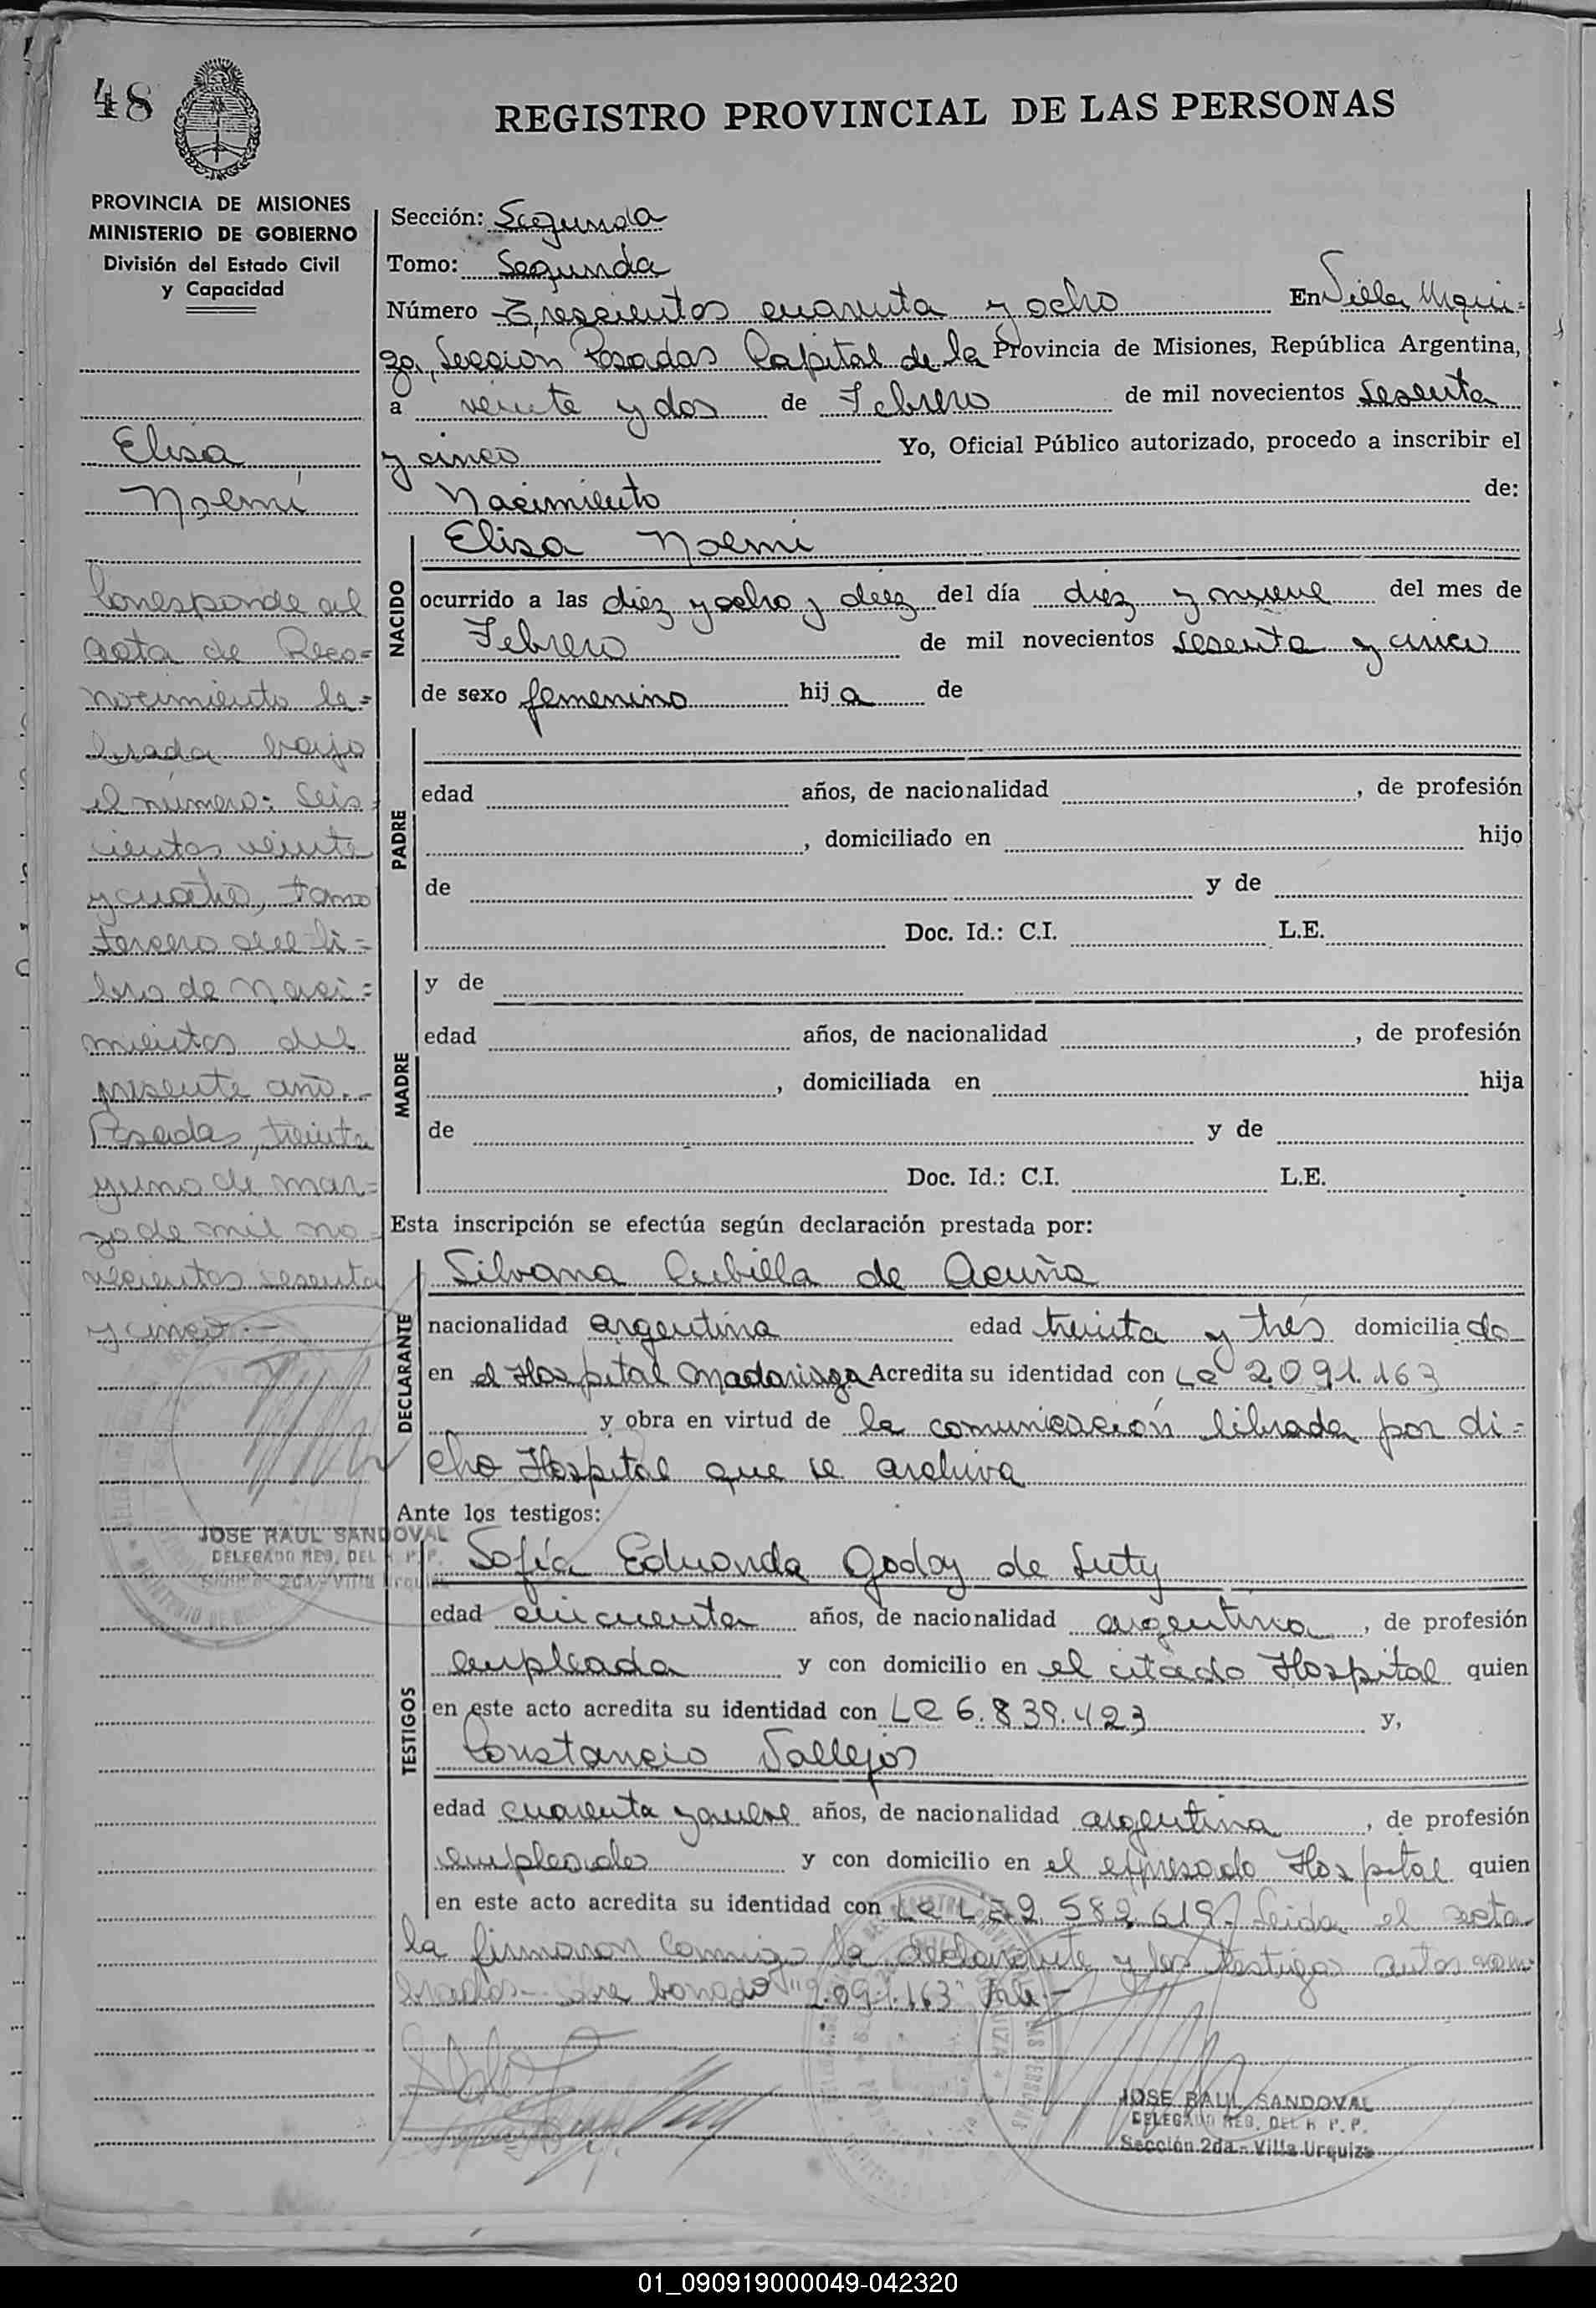 48
REGISTRO PROVINCIAL DE LAS PERSONAS
PROVINCIA DE MISIONES
MINISTERIO DE GOBIERNO
División del Estado Civil
y Capacidad
Elisa
Noemí
Corresponde al
acta de Reco=
nocimiento la=
brada bajo
el número: Seis
cientos veinte
y cuatro, tomo
tercero del li=
bro de Naci=
mientos del
presente año.-
Posadas, treinta
y uno de mar=
zo de mil no=
vecientos sesenta
y cinco.-
JOSE RAUL SANDOVAL
DELEGADO REG. DEL R. P. P.
Sección 2da.- Villa Urquiza
Sección: Segunda
Tomo: Segunda
Número Trescientos cuarenta y ocho En Villa Urqui=
za, Sección Posadas Capital de la Provincia de Misiones, República Argentina,
a veinte y dos de Febrero de mil novecientos sesenta
y cinco Yo, Oficial Público autorizado, procedo a inscribir el
Nacimiento de:
NACIDO
Elisa Noemi
ocurrido a las diez y ocho y diez del día diez y nueve del mes de
Febrero de mil novecientos sesenta y cinco
de sexo femenino hija de
PADRE
edad años, de nacionalidad , de profesión
, domiciliado en hijo
de y de
Doc. Id.: C.I. L.E.
MADRE
y de
edad años, de nacionalidad , de profesión
, domiciliada en hija
de y de
Doc. Id.: C.I. L.E.
Esta inscripción se efectúa según declaración prestada por:
DECLARANTE
Silvana Cubilla de Acuña
nacionalidad argentina edad treinta y tres domiciliado
en el Hospital Madariaga Acredita su identidad con LC 2.091.163
y obra en virtud de la comunicación librada por di=
cho Hospital que se archiva
Ante los testigos:
TESTIGOS
Sofía Eduarda Godoy de Luty
edad cincuenta años, de nacionalidad argentina, de profesión
empleada y con domicilio en el citado Hospital quien
en este acto acredita su identidad con LC 6.839.423 y,
Constancio Vallejos
edad cuarenta y nueve años, de nacionalidad argentina, de profesión
empleado y con domicilio en el expresado Hospital quien
en este acto acredita su identidad con 2.582.619 Leida el acta
la firmaron conmigo la declarante y los testigos antes nom=
brados.- Sobre borrado "2.091.163" Vale.-
JOSE RAUL SANDOVAL
DELEGADO REG. DEL R. P. P.
Sección 2da.- Villa Urquiza
01_090919000049-042320